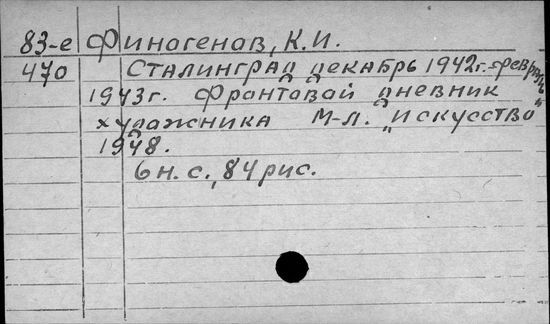 83-е Финогенов, К.И.
470 Сталинград декабрь 1942г.-февраль
1943г. Фронтовой дневник
художника М-Л. „Искусство"
1948.
6 н. с., 84 рис.